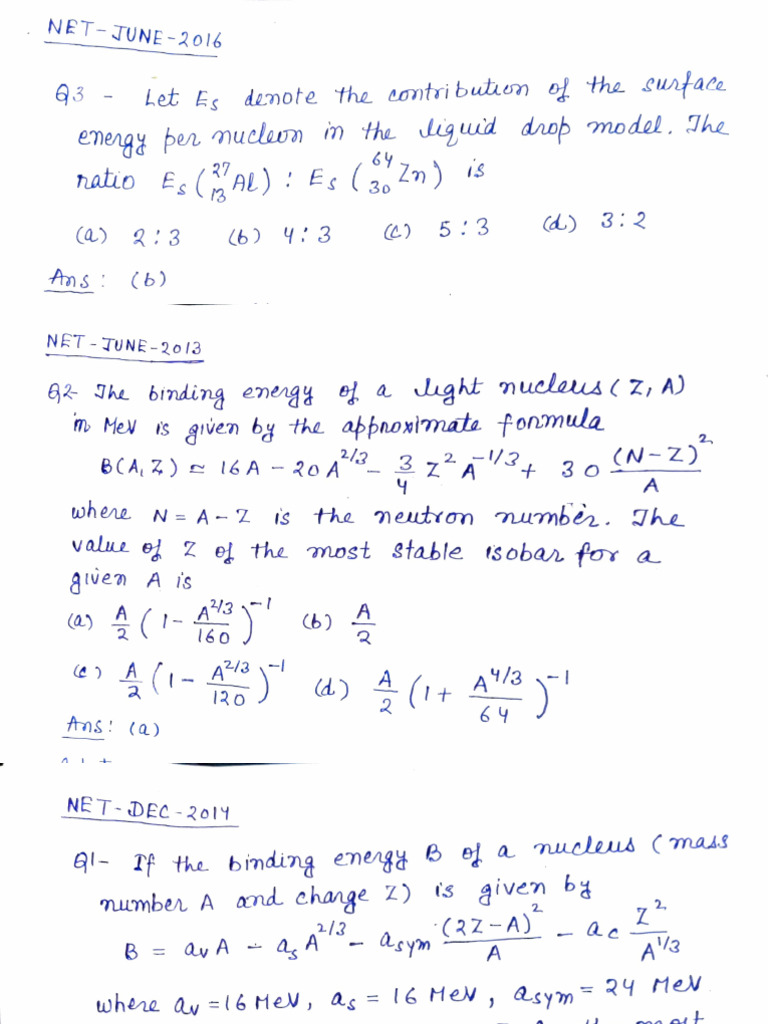 NET-JUNE-2016
Q3 - Let Es denote the contribution of the surface
energy per nucleon in the liquid drop model. The
ratio Es (²⁷₁₃Al) : Es (⁶⁴₃₀Zn) is
(a) 2:3 (b) 4:3 (c) 5:3 (d) 3:2
Ans: (b)
NET-JUNE-2013
Q2- The binding energy of a light nucleus (Z, A)
in MeV is given by the approximate formula
B(A, Z) ≃ 16A - 20A^2/3 - 3/4 Z² A^-1/3 + 30 (N-Z)²/A
where N = A-Z is the neutron number. The
value of Z of the most stable isobar for a
given A is
(a) A/2 (1 - A^2/3/160)^-1 (b) A/2
(c) A/2 (1 - A^2/3/120)^-1 (d) A/2 (1 + A^4/3/64)^-1
Ans: (a)
NET-DEC-2014
Q1- If the binding energy B of a nucleus (mass
number A and charge Z) is given by
B = avA - asA^2/3 - asym (2Z-A)²/A - ac Z²/A^1/3
where av = 16 MeV, as = 16 MeV, asym = 24 MeV